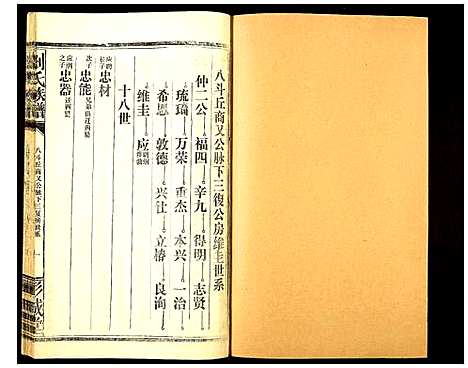 八斗丘商又公脉下三復公房維圭世系
仲二公 福四 辛九 得明 志贤
琉璚 万荣 重杰 本兴 一治
希恩 敦德 兴让 立椿 良洵
维圭 应
十八世
忠材
忠能
忠器
刘氏族譜
八斗丘商又公脉下三复房世系
一
彭城堂